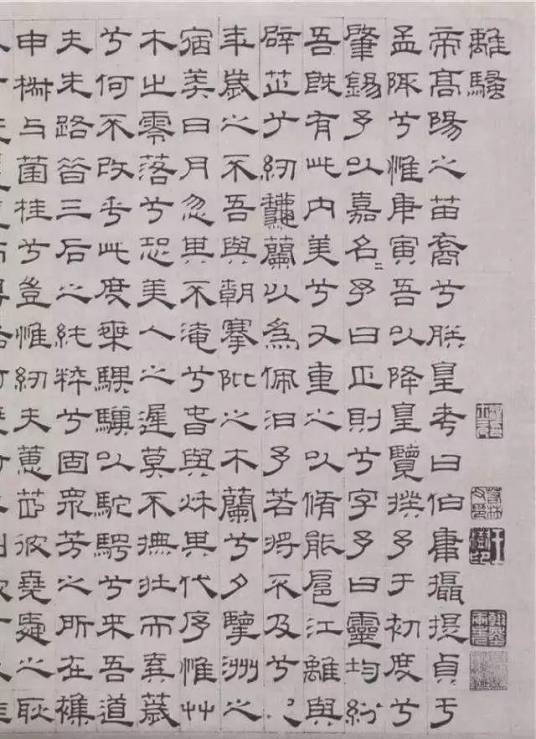 離騷
帝高陽之苗裔兮朕皇考曰伯庸攝提貞于
孟陬兮惟庚寅吾以降皇覽揆予于初度兮
肇錫予以嘉名〻予曰正則兮字予曰靈均紛
吾既有此內美兮又重之以脩能扈江離與
辟芷兮紉龝蘭以為佩汩予若將不及兮
年歲之不吾與朝搴阰之木蘭兮夕擥洲之
宿莽日月忽其不淹兮春與秋其代序惟艸
木之零落兮恐美人之遲莫不撫壯而棄薉
兮何不改乎此度椉騏驥以駝騁兮來吾道
夫先路昔三后之純粹兮固眾芳之所在襍
申椒与菌桂兮豈惟紉夫蕙茝彼堯舜之耿